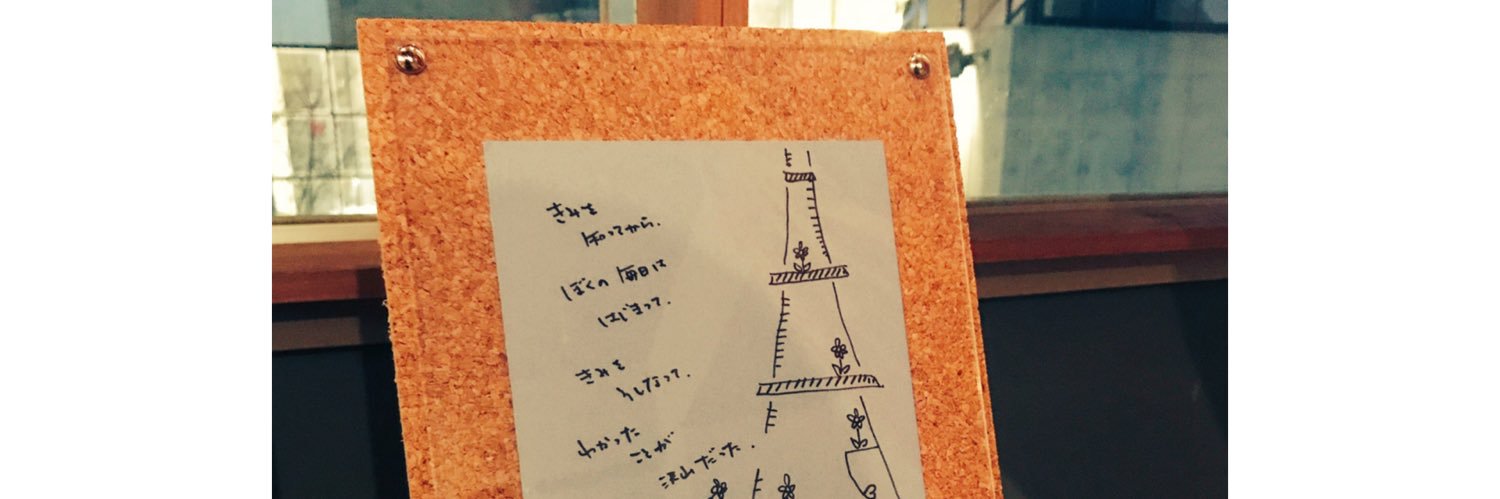 きみを
知ってから、
ぼくの毎日は
はじまって、
きみを
うしなって、
わかった
ことが
沢山だった。